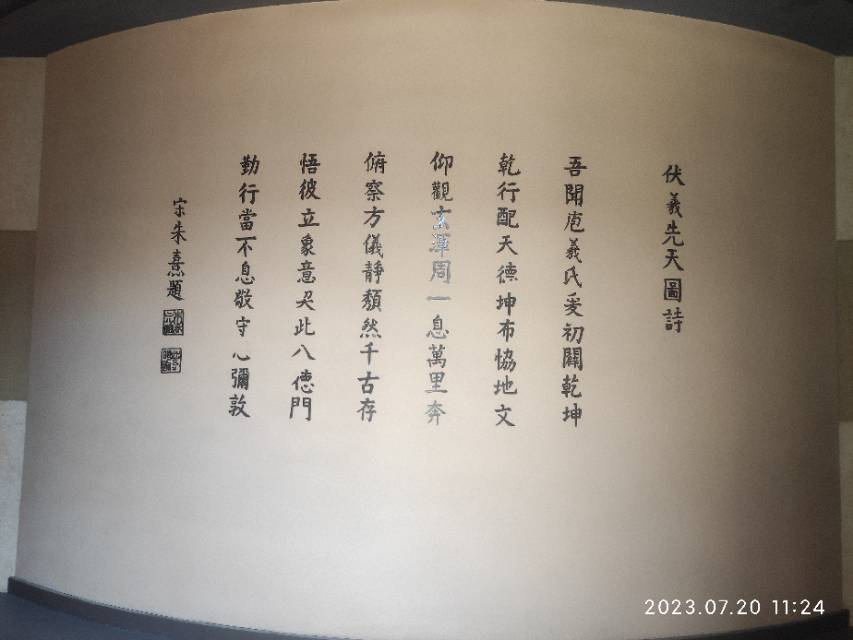 伏羲先天圖詩
吾聞庖羲氏爰初闢乾坤
乾行配天德坤布協地文
仰觀玄渾周一息萬里奔
俯察方儀靜頹然千古存
悟彼立象意契此入德門
勤行當不息敬守心彌敦
宋朱熹題
2023.07.20 11:24